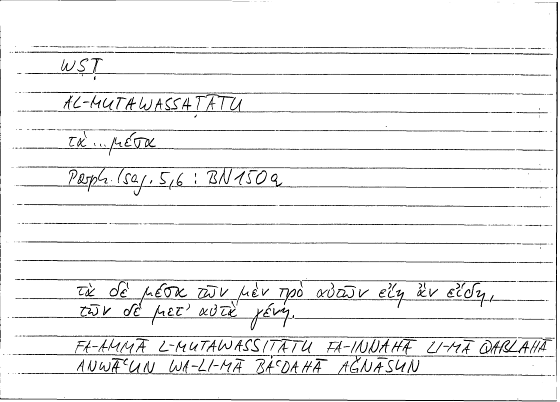 WSṬ
AL-MUTAWASSAṬĀTU
τὰ ... μέσα
Porph. Isag. 5,6 : BN 150a
τὰ δὲ μέσα τῶν μὲν πρὸ αὐτῶν εἴη ἂν εἴδη,
τῶν δὲ μετ' αὐτὰ γένη.
FA-AMMĀ L-MUTAWASSIṬĀTU FA-INNAHĀ LI-MĀ QABLAHĀ
ANWĀʿUN WA-LI-MĀ BAʿDAHĀ AǦNĀSUN